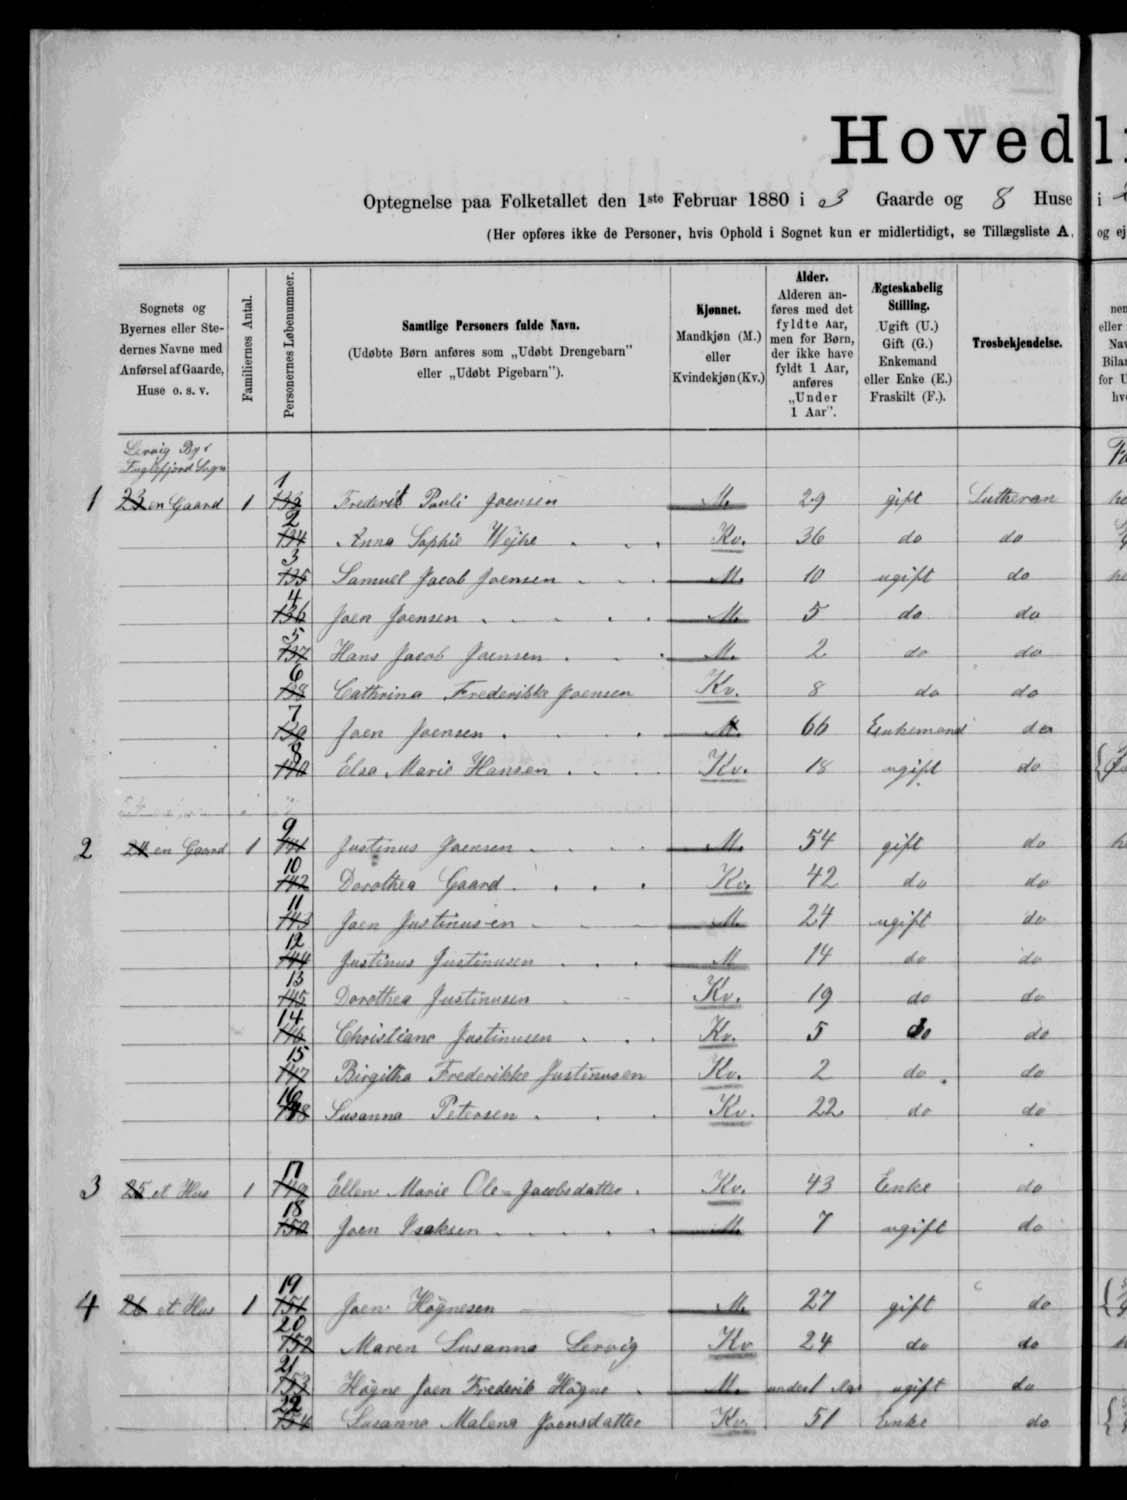 Hovedli
Optegnelse paa Folketallet den 1ste Februar 1880 i 3 Gaarde og 8 Huse i
(Her opføres ikke de Personer, hvis Ophold i Sognet kun er midlertidigt, se Tillægsliste A. og ej
Sognets og Byernes eller Stedernes Navne med Anførsel af Gaarde, Huse o. s. v.
Familiernes Antal.
Personernes Løbenummer.
Samtlige Personers fulde Navn.
(Udøbte Børn anføres som „Udøbt Drengebarn”
eller „Udøbt Pigebarn”).
Kjønnet.
Mandkjøn (M.)
eller
Kvindekjøn (Kv.)
Alder.
Alderen anføres med det fyldte Aar, men for Børn, der ikke have fyldt 1 Aar, anføres „Under 1 Aar”.
Ægteskabelig Stilling.
Ugift (U.)
Gift (G.)
Enkemand eller Enke (E.)
Fraskilt (F.).
Trosbekjendelse.
Lervig By
Fuglefjord Sogn
1 23 en Gaard 1 1 133 Frederik Pauli Joensen M. 29 gift Lutheran
2 134 Anna Sophie Wejhe Kv. 36 do do
3 135 Samuel Jacob Joensen M. 10 ugift do
4 136 Joen Joensen M. 5 do do
5 137 Hans Jacob Joensen M. 2 do do
6 138 Cathrina Frederikke Joensen Kv. 8 do do
7 139 Joen Joensen M. 66 Enkemand do
8 140 Elsa Marie Hansen Kv. 18 ugift do
2 24 en Gaard 1 9 141 Justinus Joensen M. 54 gift do
10 142 Dorothea Gaard Kv. 42 do do
11 143 Joen Justinusen M. 24 ugift do
12 144 Justinus Justinusen M 14 do do
13 145 Dorothea Justinusen Kv. 19 do do
14 146 Christiane Justinusen Kv. 5 do do
15 147 Birgitha Frederikke Justinusen Kv. 2 do do
16 148 Susanna Petersen Kv. 22 do do
3 25 et Hus 1 17 149 Ellen Marie Ole-Jacobsdatter Kv. 43 Enke do
18 150 Joen Isaksen M. 7 ugift do
4 26 et Hus 1 19 151 Joen Høgnesen M. 27 gift do
20 152 Maren Susanna Lervig Kv 24 do do
21 153 Høgne Joen Frederik Høgne M. under 1 Aar ugift do
22 154 Susanna Malena Joensdatter Kv. 51 Enke do